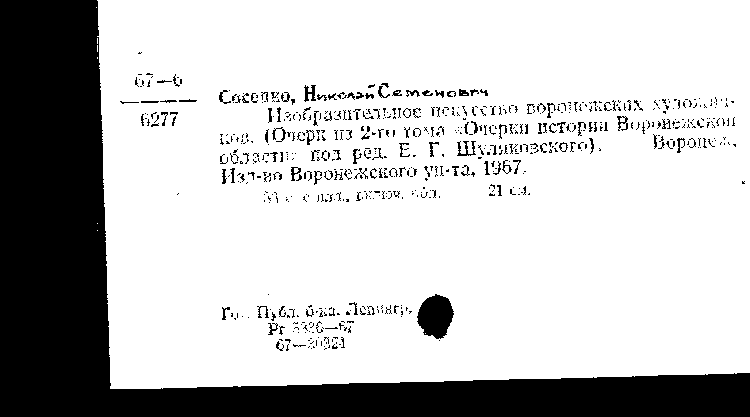 67—6
6277
Сосенко, Николай Семенович
Изобразительное искусство воронежских художни-
ков. (Очерк из 2-го тома «Очерки истории Воронежской
области» под ред. Е. Г. Шуляковского). Воронеж,
Изд-во Воронежского ун-та, 1967.
с ил., включ. обл. 21 см.
Гос. Публ. б-ка. Ленингр.
Рг 5320—67